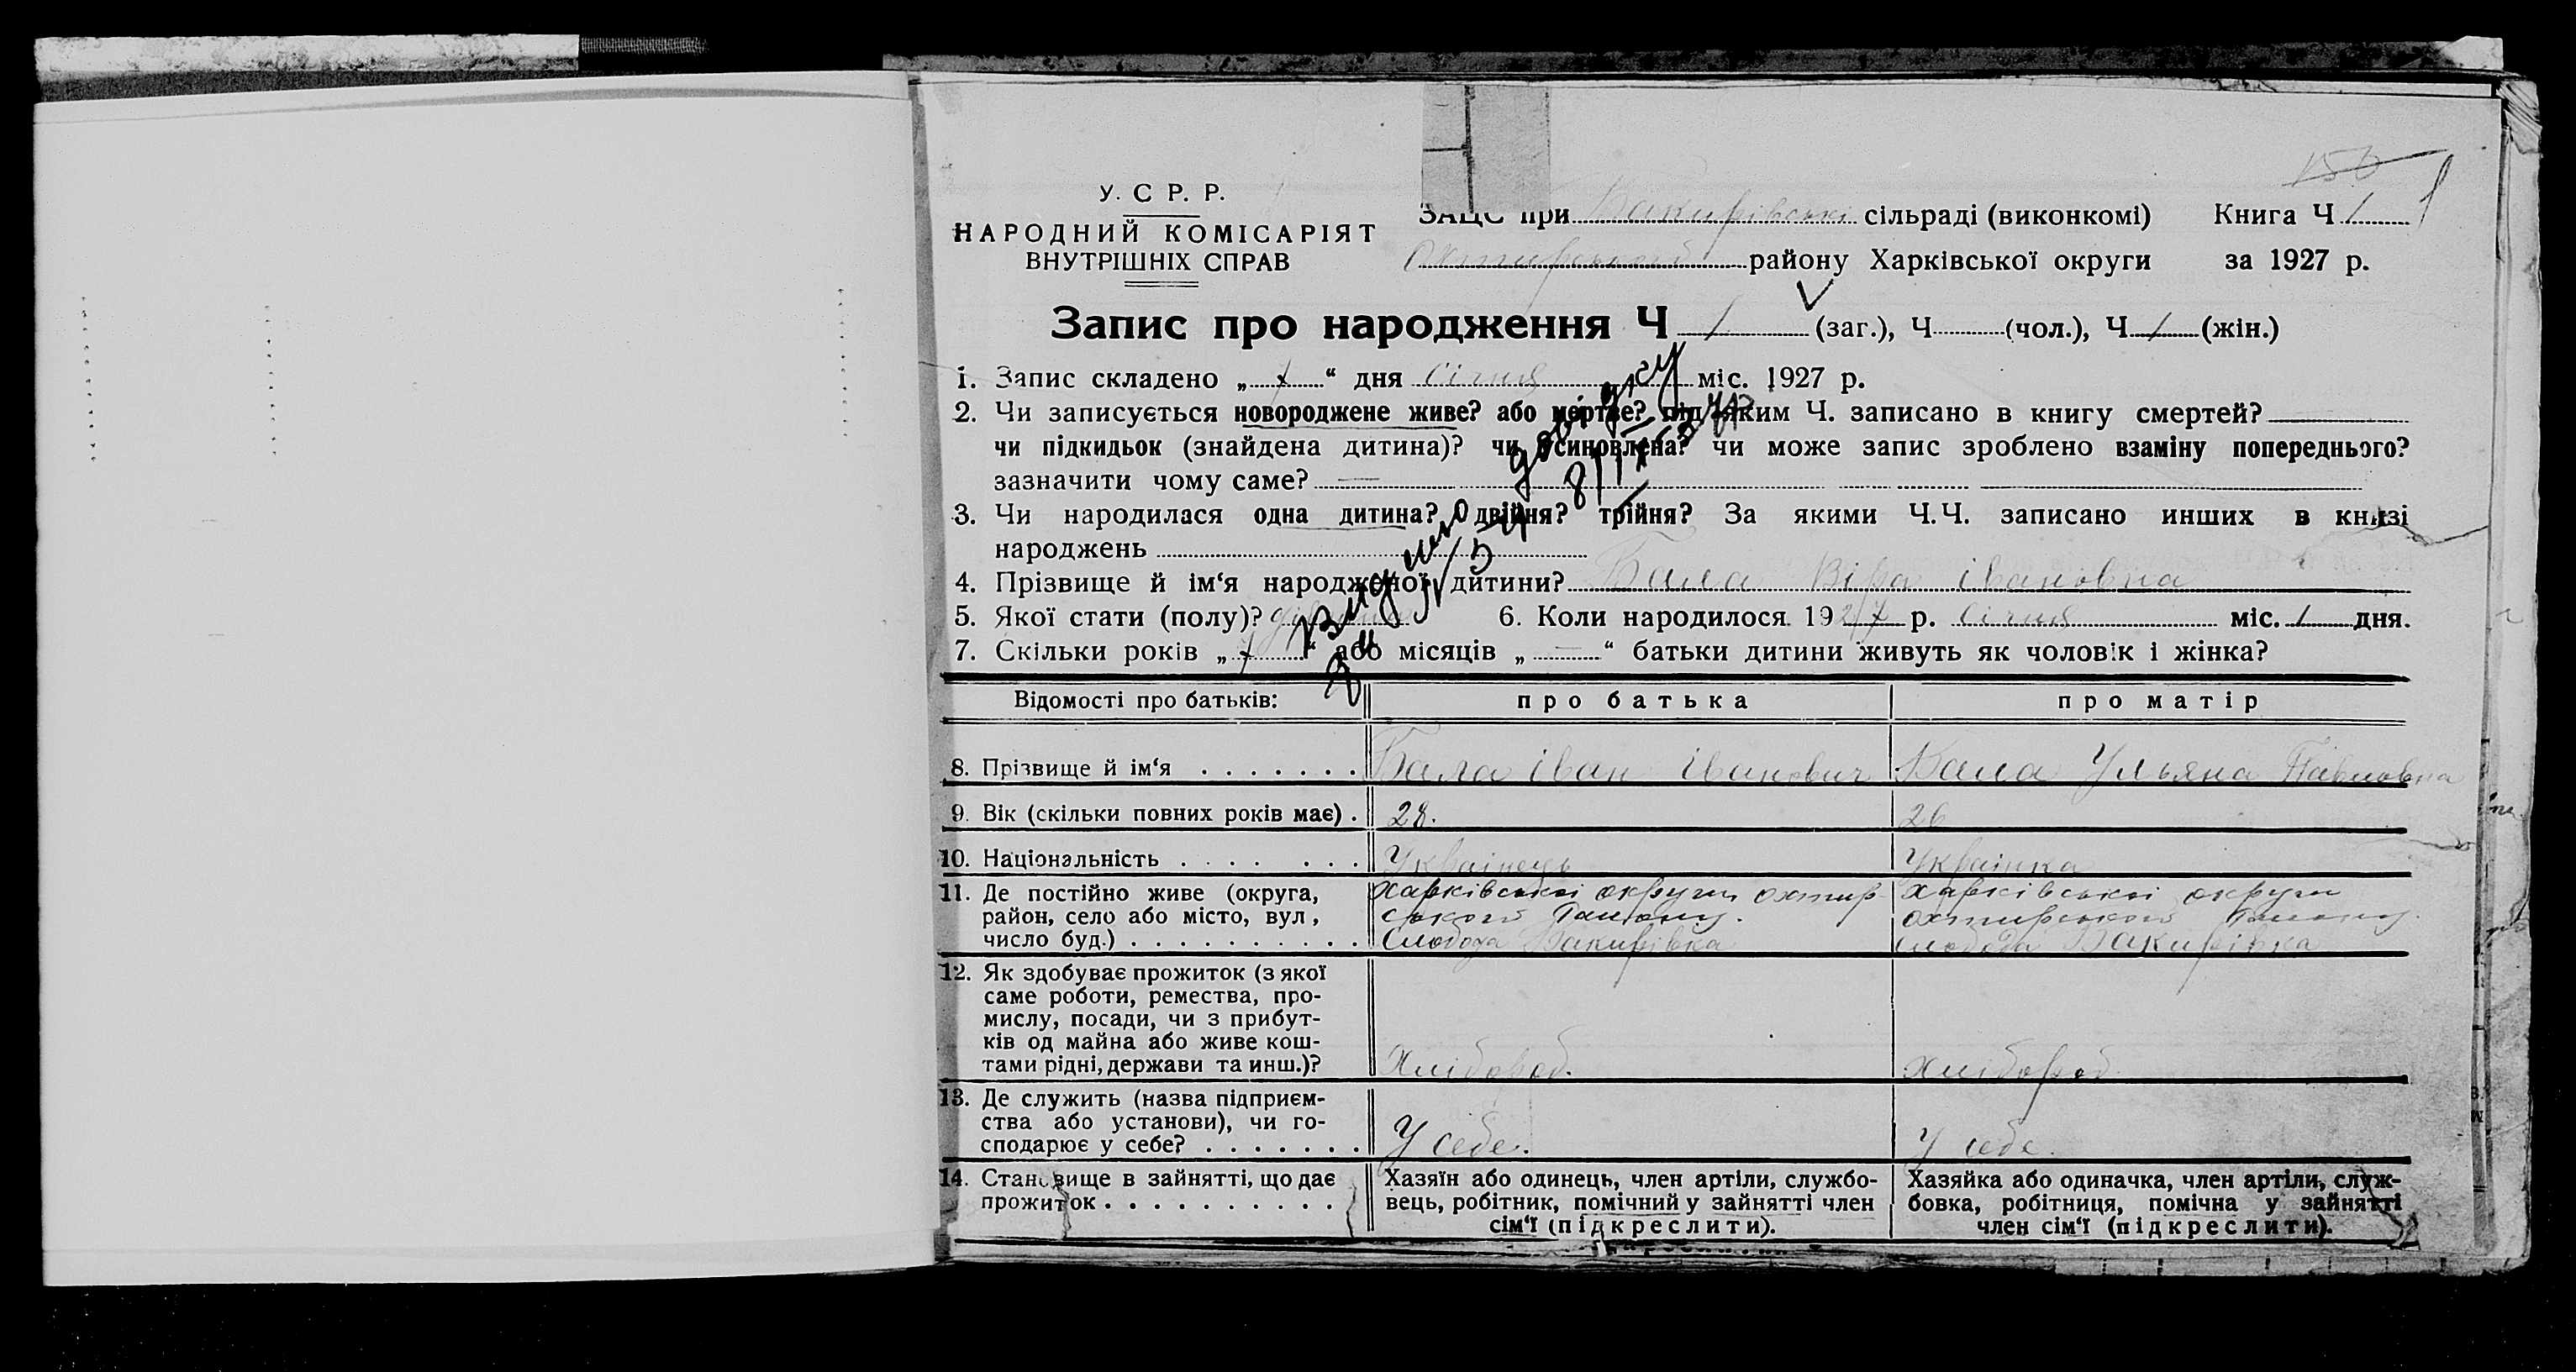 150
1
У. С Р. Р.
НАРОДНИЙ КОМІСАРІЯТ
ВНУТРІШНІХ СПРАВ
ЗАЦС при Бакирівські сільраді (виконкомі) Книга Ч 1
Охтирського району Харківської округи за 1927 р.
Запис про народження Ч 1 (заг.), Ч (чол.), Ч 1 (жін.)
1. Запис складено „ 7 “ дня Січня міс. 1927 р.
2. Чи записується новороджене живе? або мертве? під яким Ч. записано в книгу смертей?
чи підкидьок (знайдена дитина)? чи усиновлена? чи може запис зроблено взаміну попереднього?
зазначити чому саме? —
3. Чи народилася одна дитина? двійня? трійня? За якими Ч.Ч. записано инших в книзі
народжень
4. Прізвище й ім‘я народженої дитини? Бала Віра Івановна
5. Якої стати (полу)? 6. Коли народилося 1927 р. Січня міс. 1 дня.
7. Скільки років „ 7 “ або місяців „ — “ батьки дитини живуть як чоловік і жінка?
Видано довідку
Відомості про батьків: про батька про матір
8. Прізвище й ім‘я . . . . . . . Бала Іван Іванович Бала Ульяна Павловна
9. Вік (скільки повних років має) . 28. 26
10. Національність . . . . . . . Українець Українка
11. Де постійно живе (округа, Харківської округи Охтир- Харківської округи
район, село або місто, вул, ського Району. Охтирського Району.
число буд.) . . . . . . . . . . Слобода Бакирівка слобода Бакирівка
12. Як здобуває прожиток (з якої
саме роботи, ремества, про-
мислу, посади, чи з прибут-
ків од майна або живе кош-
тами рідні, держави та инш.)? Хлібороб. Хлібороб.
13. Де служить (назва підприєм-
ства або установи), чи го-
сподарює у себе? . . . . . . . У себе. У себе.
14. Становище в зайнятті, що дає Хазяїн або одинець, член артіли, службо- Хазяйка або одиначка, член артіли, служ-
прожиток . . . . . . . . . . вець, робітник, помічний у зайнятті член бовка, робітниця, помічна у зайнятті
сім‘ї (підкреслити). член сім‘ї (підкреслити).